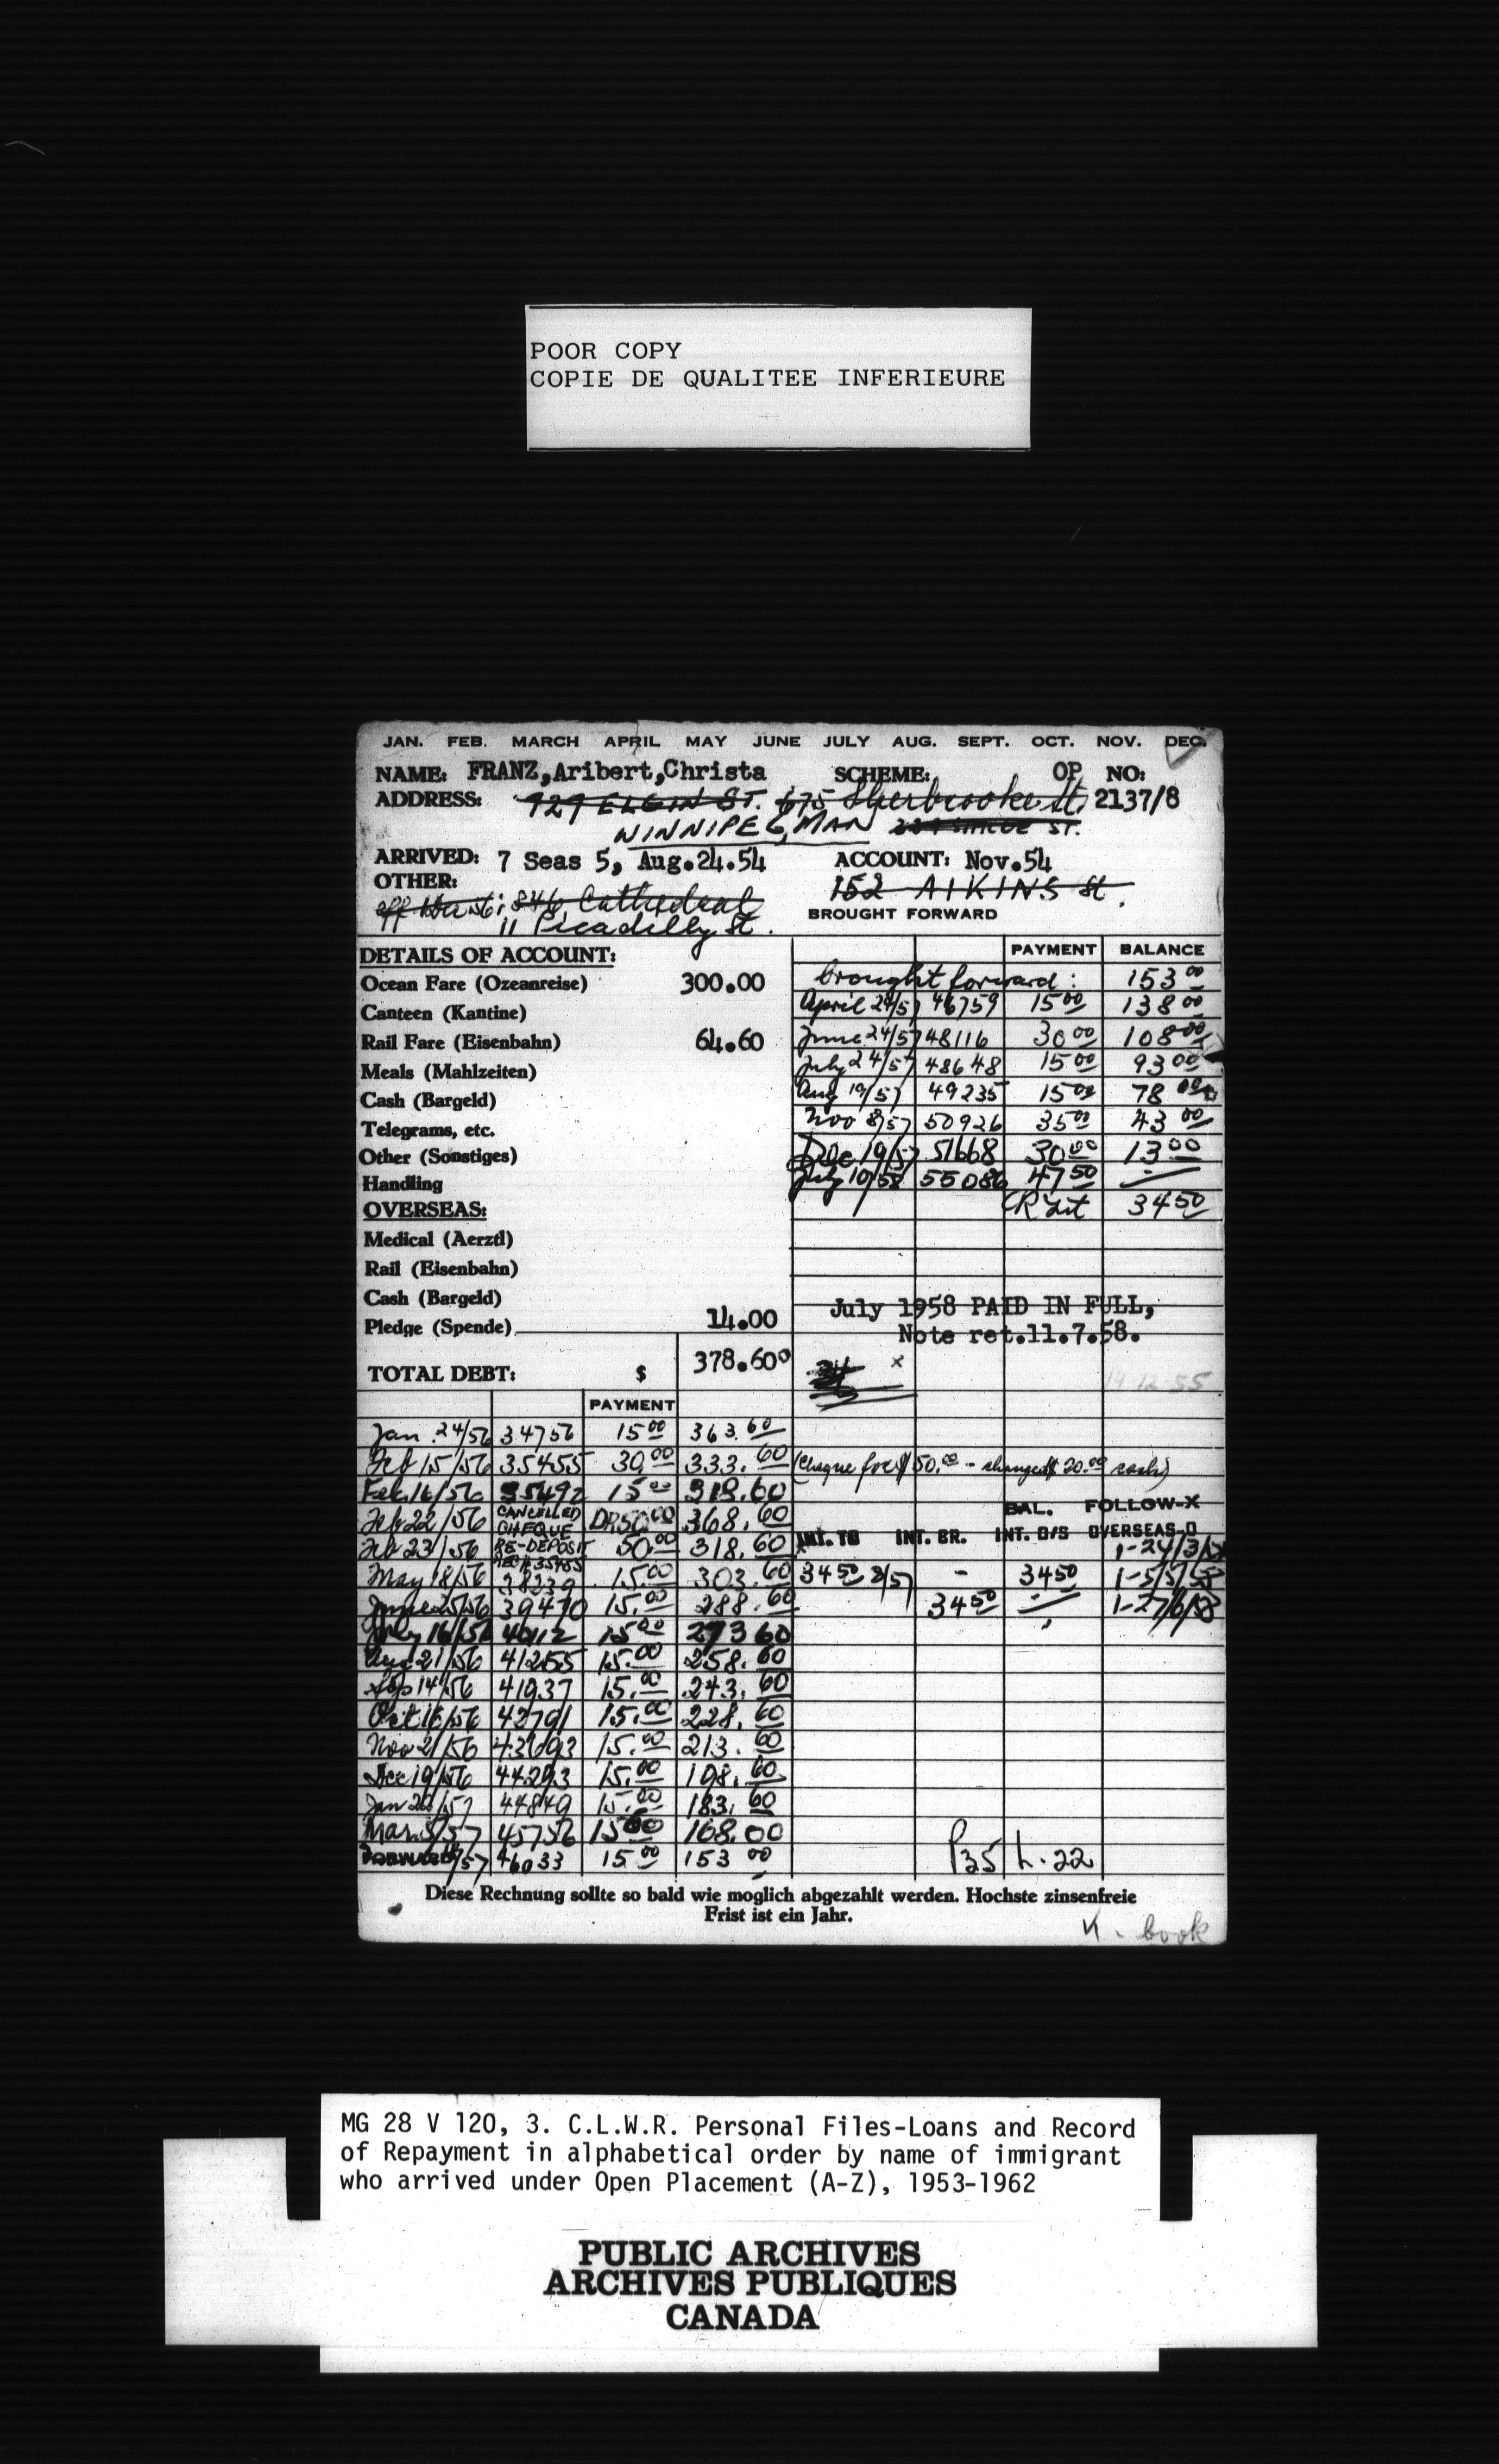 POOR COPY
COPIE DE QUALITEE INFERIEURE
JAN. FEB. MARCH APRIL MAY JUNE JULY AUG. SEPT. OCT. NOV. DEC.
NAME: FRANZ, Aribert, Christa SCHEME: OP NO:
ADDRESS: 929 ELGIN ST. 675 Sherbrooke St. 2137/8
WINNIPEG, MAN ST.
ARRIVED: 7 Seas 5, Aug.24.54 ACCOUNT: Nov.54
OTHER: 152 AIKINS St.
846 Cathedral
11 Picadilly St. BROUGHT FORWARD
DETAILS OF ACCOUNT: PAYMENT BALANCE
Ocean Fare (Ozeanreise) 300.00 brought forward: 153 00
Canteen (Kantine) April 24/57 46759 15 00 138 00
Rail Fare (Eisenbahn) 64.60 June 24/57 48116 30 00 108 00
Meals (Mahlzeiten) July 24/57 48648 15 00 93 00
Cash (Bargeld) Aug 19/57 49235 15 00 78 00
Telegrams, etc. Nov 8/57 50926 35 00 43 00
Other (Sonstiges) Dec 19/57 51668 30 00 13 00
Handling July 10/58 55086 47 50 —
OVERSEAS: CR Int 34 50
Medical (Aerztl)
Rail (Eisenbahn)
Cash (Bargeld)
Pledge (Spende) 14.00 July 1958 PAID IN FULL,
Note ret.11.7.58.
TOTAL DEBT: $ 378.60 x
14-12-55
PAYMENT
Jan. 24/56 34756 15 00 363.60
Feb 15/56 35455 30.00 333.60 (Cheque for $50.00 - change $20.00 cash)
Feb. 16/56 35492 15 00 318.60
Feb 22/56 CANCELLED CHEQUE DR 50 00 368.60 BAL. FOLLOW-X
Feb 23/56 RE-DEPOSIT REC# 35455 50.00 318.60 INT. TO INT. BR. INT. O/S OVERSEAS-O
1-24/3/58
May 18/56 38239 15.00 303.60 34 50 2/57 - 34 50 1-5/5/58
June 25/56 39470 15.00 288.60 34 50 — 1-27/6/58
July 16/56 40112 15 00 273 60
Aug 21/56 41255 15.00 258.60
Sep 14/56 41937 15.00 243.60
Oct 16/56 42791 15.00 228.60
Nov 21/56 43693 15.00 213.60
Dec 19/56 44293 15.00 198.60
Jan 20/57 44849 15.00 183.60
Mar. 5/57 45756 15 60 168.00
FORWARD /57 46033 15 00 153 00 P35 L.22
Diese Rechnung sollte so bald wie moglich abgezahlt werden. Hochste zinsenfreie
Frist ist ein Jahr.
K. book
MG 28 V 120, 3. C.L.W.R. Personal Files-Loans and Record
of Repayment in alphabetical order by name of immigrant
who arrived under Open Placement (A-Z), 1953-1962
PUBLIC ARCHIVES
ARCHIVES PUBLIQUES
CANADA